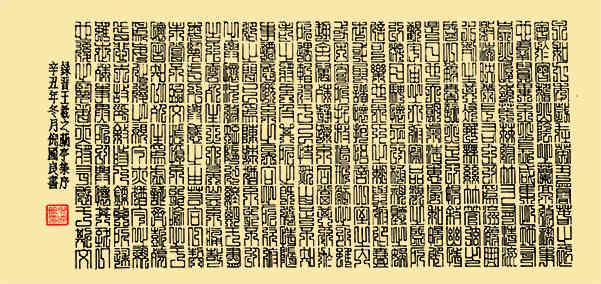 永和九年歲在癸丑暮春之初
會於會稽山陰之蘭亭修禊事
也群賢畢至少長咸集此地有
崇山峻嶺茂林修竹又有清流
激湍映帶左右引以為流觴曲
水列坐其次雖無絲竹管弦之
盛一觴一詠亦足以暢敘幽情
是日也天朗氣清惠風和暢仰
觀宇宙之大俯察品類之盛所
以遊目騁懷足以極視聽之娛
信可樂也夫人之相與俯仰一
世或取諸懷抱悟言一室之內
或因寄所託放浪形骸之外雖
趣舍萬殊靜躁不同當其欣於
所遇暫得於己快然自足不知
老之將至及其所之既倦情隨
事遷感慨係之矣向之所欣俯
仰之間已為陳跡猶不能不以
之興懷況修短隨化終期於盡
古人云死生亦大矣豈不痛哉
每覽昔人興感之由若合一契
未嘗不臨文嗟悼不能喻之於
懷固知一死生為虛誕齊彭殤
為妄作後之視今亦猶今之視
昔悲夫故列敘時人錄其所述
雖世殊事異所以興懷其致一
也後之覽者亦將有感於斯文
錄晉王羲之蘭亭集序
辛丑年冬月倪國良書